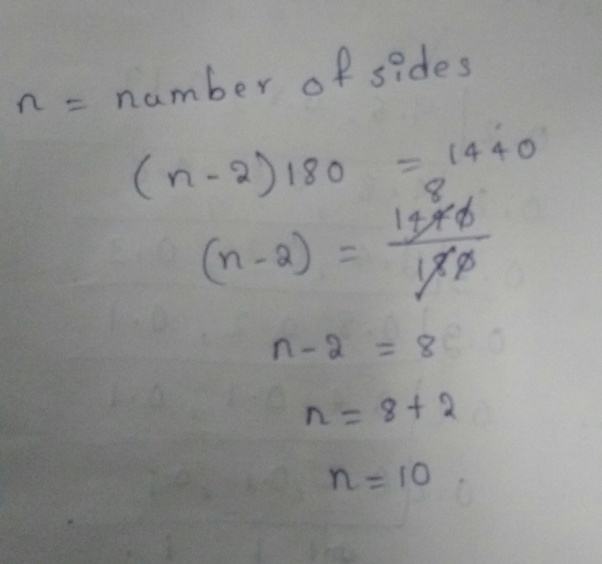 n = number of sides
(n-2)180 = 1440
8
(n-2) = 1440/180
n-2 = 8
n = 8+2
n = 10.